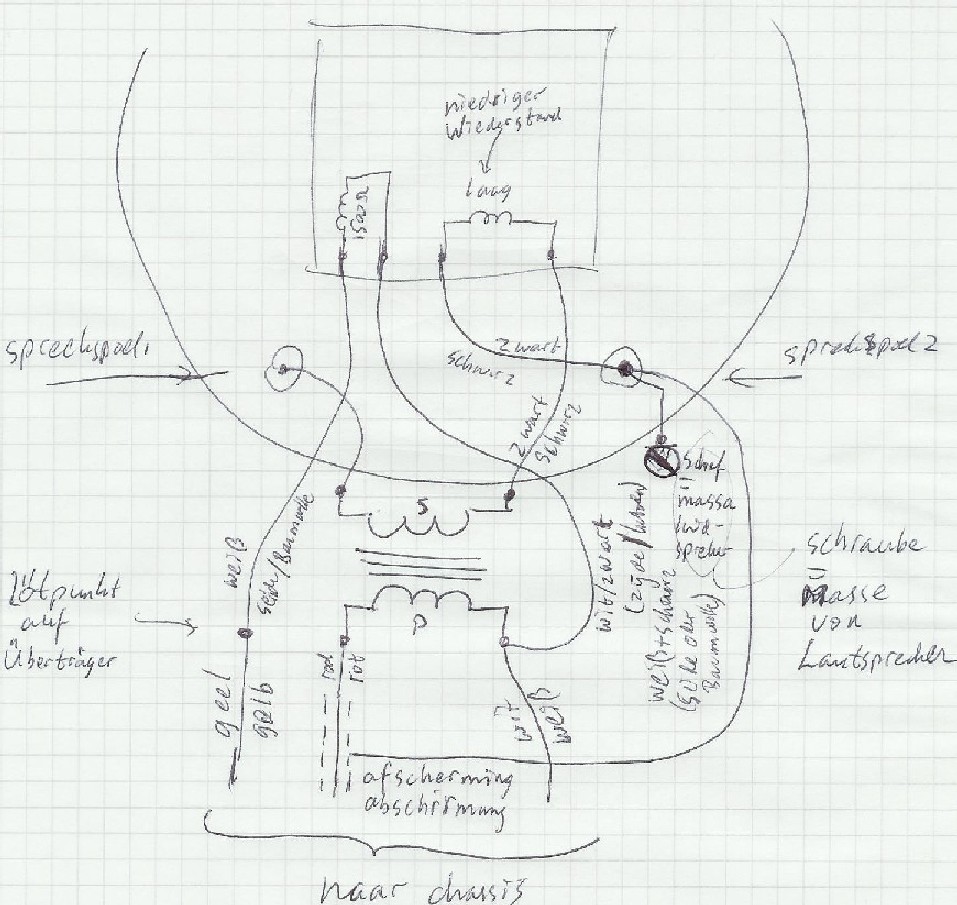 niedriger
Wiederstand
laag
1500Ω
sprechspoel 1
sprechspoel 2
zwart
schwarz
zwart
schwarz
S
P
weiß
Seide/Baumwolle
Lötpunkt
auf
Überträger
geel
gelb
rood
rot
wit
weiß
wit/zwart
(zijde/katoen)
weiß+schwarz
(Seide oder
Baumwolle)
schroef
=
massa
luid-
spreker
schraube
=
Masse
von
Lautsprecher
afscherming
abschirmung
naar chassis